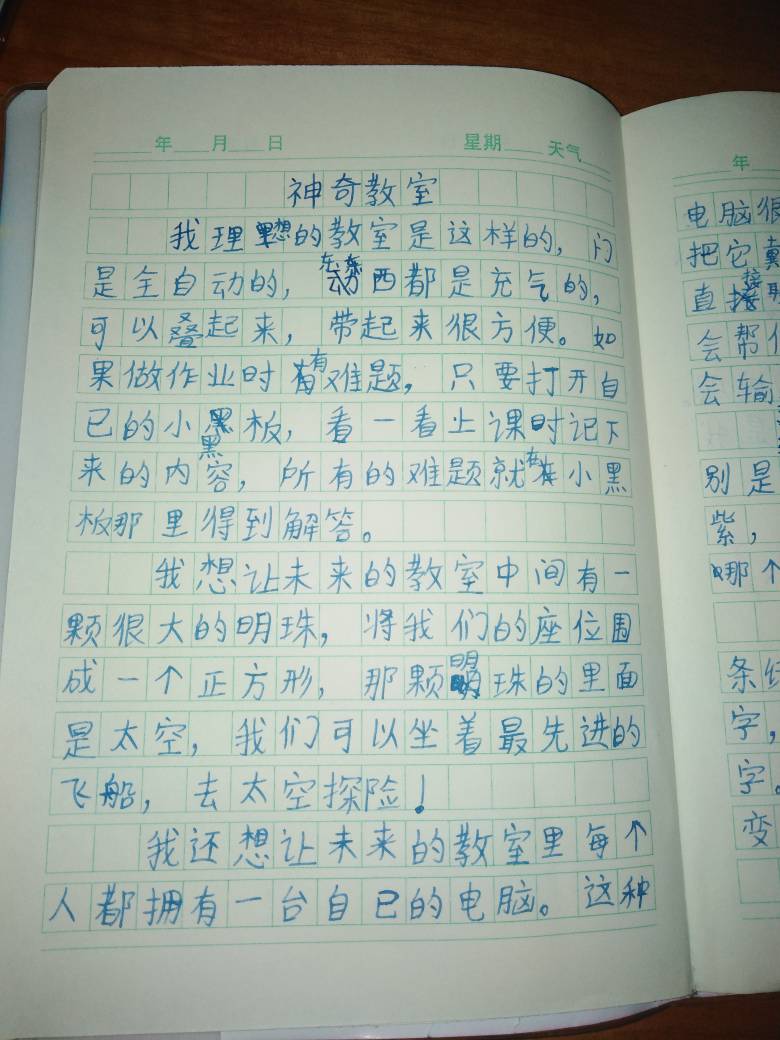 年 月 日 星期 天气
神奇教室
我理想的教室是这样的，门
是全自动的，东西都是充气的，
可以叠起来，带起来很方便。如
果做作业时有难题，只要打开自
已的小黑板，看一看上课时记下
来的内容，所有的难题就在小黑
板那里得到解答。
我想让未来的教室中间有一
颗很大的明珠，将我们的座位围
成一个正方形，那颗明珠的里面
是太空，我们可以坐着最先进的
飞船，去太空探险！
我还想让未来的教室里每个
人都拥有一台自已的电脑。这种
年
电脑很
把它戴
直接取
会帮
会输
别是
紫，
哪个
条
字，
字。
变